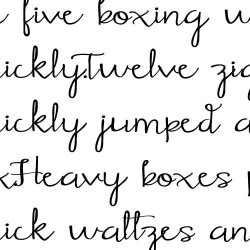 five boxing w
ickly.Twelve zig
uickly jumped a
x.Heavy boxes p
uick waltzes an